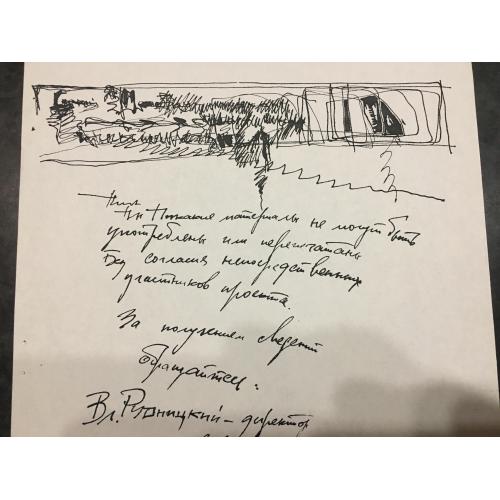 Ни Никакие материалы не могут быть
употреблены или перепечатаны
Без согласия непосредственных
участников проекта.
За получением сведений
обращайтесь:
Вл. Рудницкий – директор